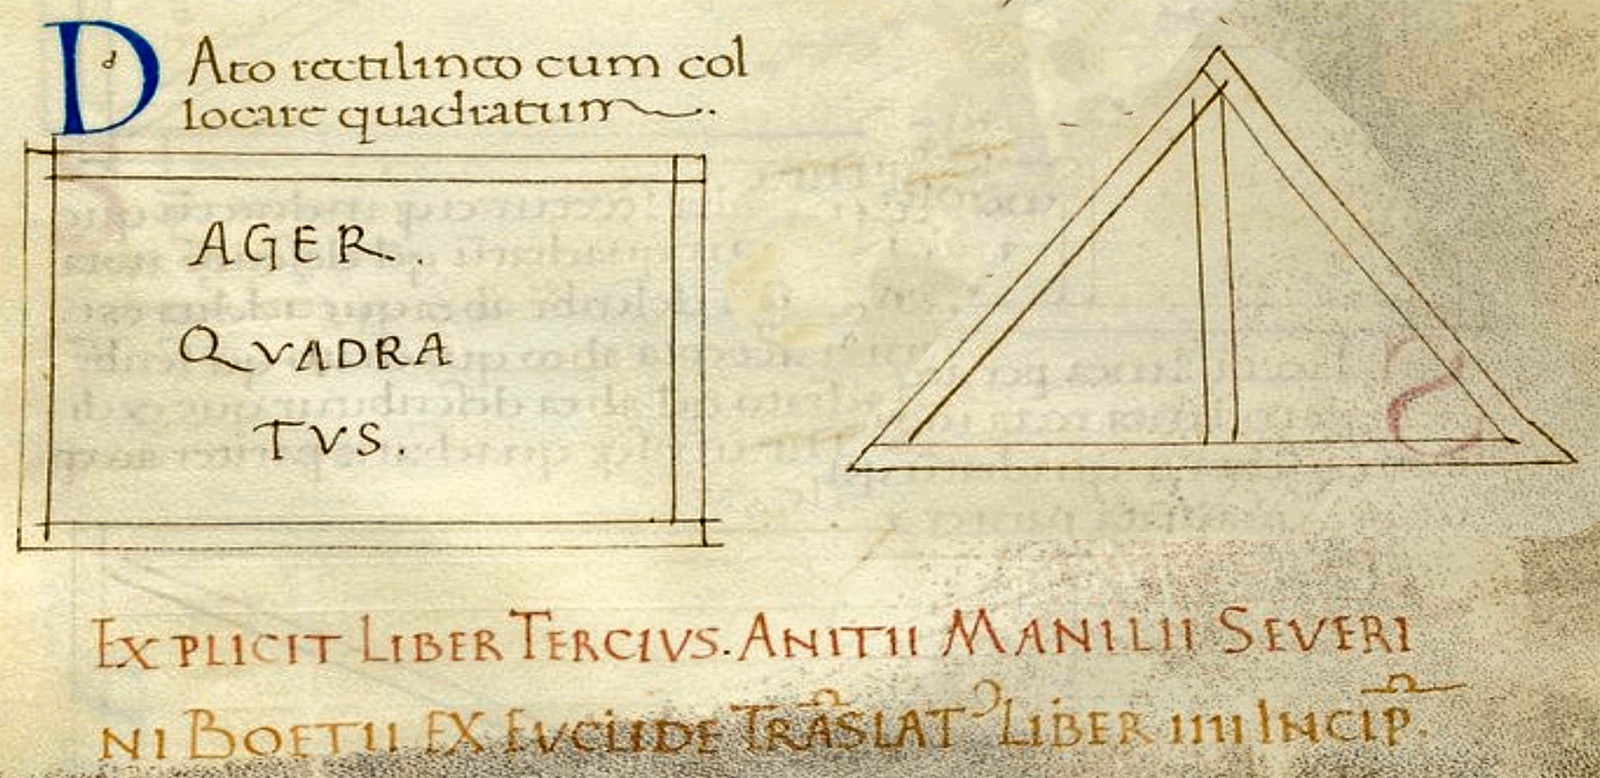 DAto rectilineo cum col
locare quadratum.
AGER.
QVADRA
TVS.
EXPLICIT LIBER TERCIVS. ANITII MANILII SEVERI
NI BOETII EX EVCLIDE TRĀSLATꝰ LIBER IIII INCIP̄.